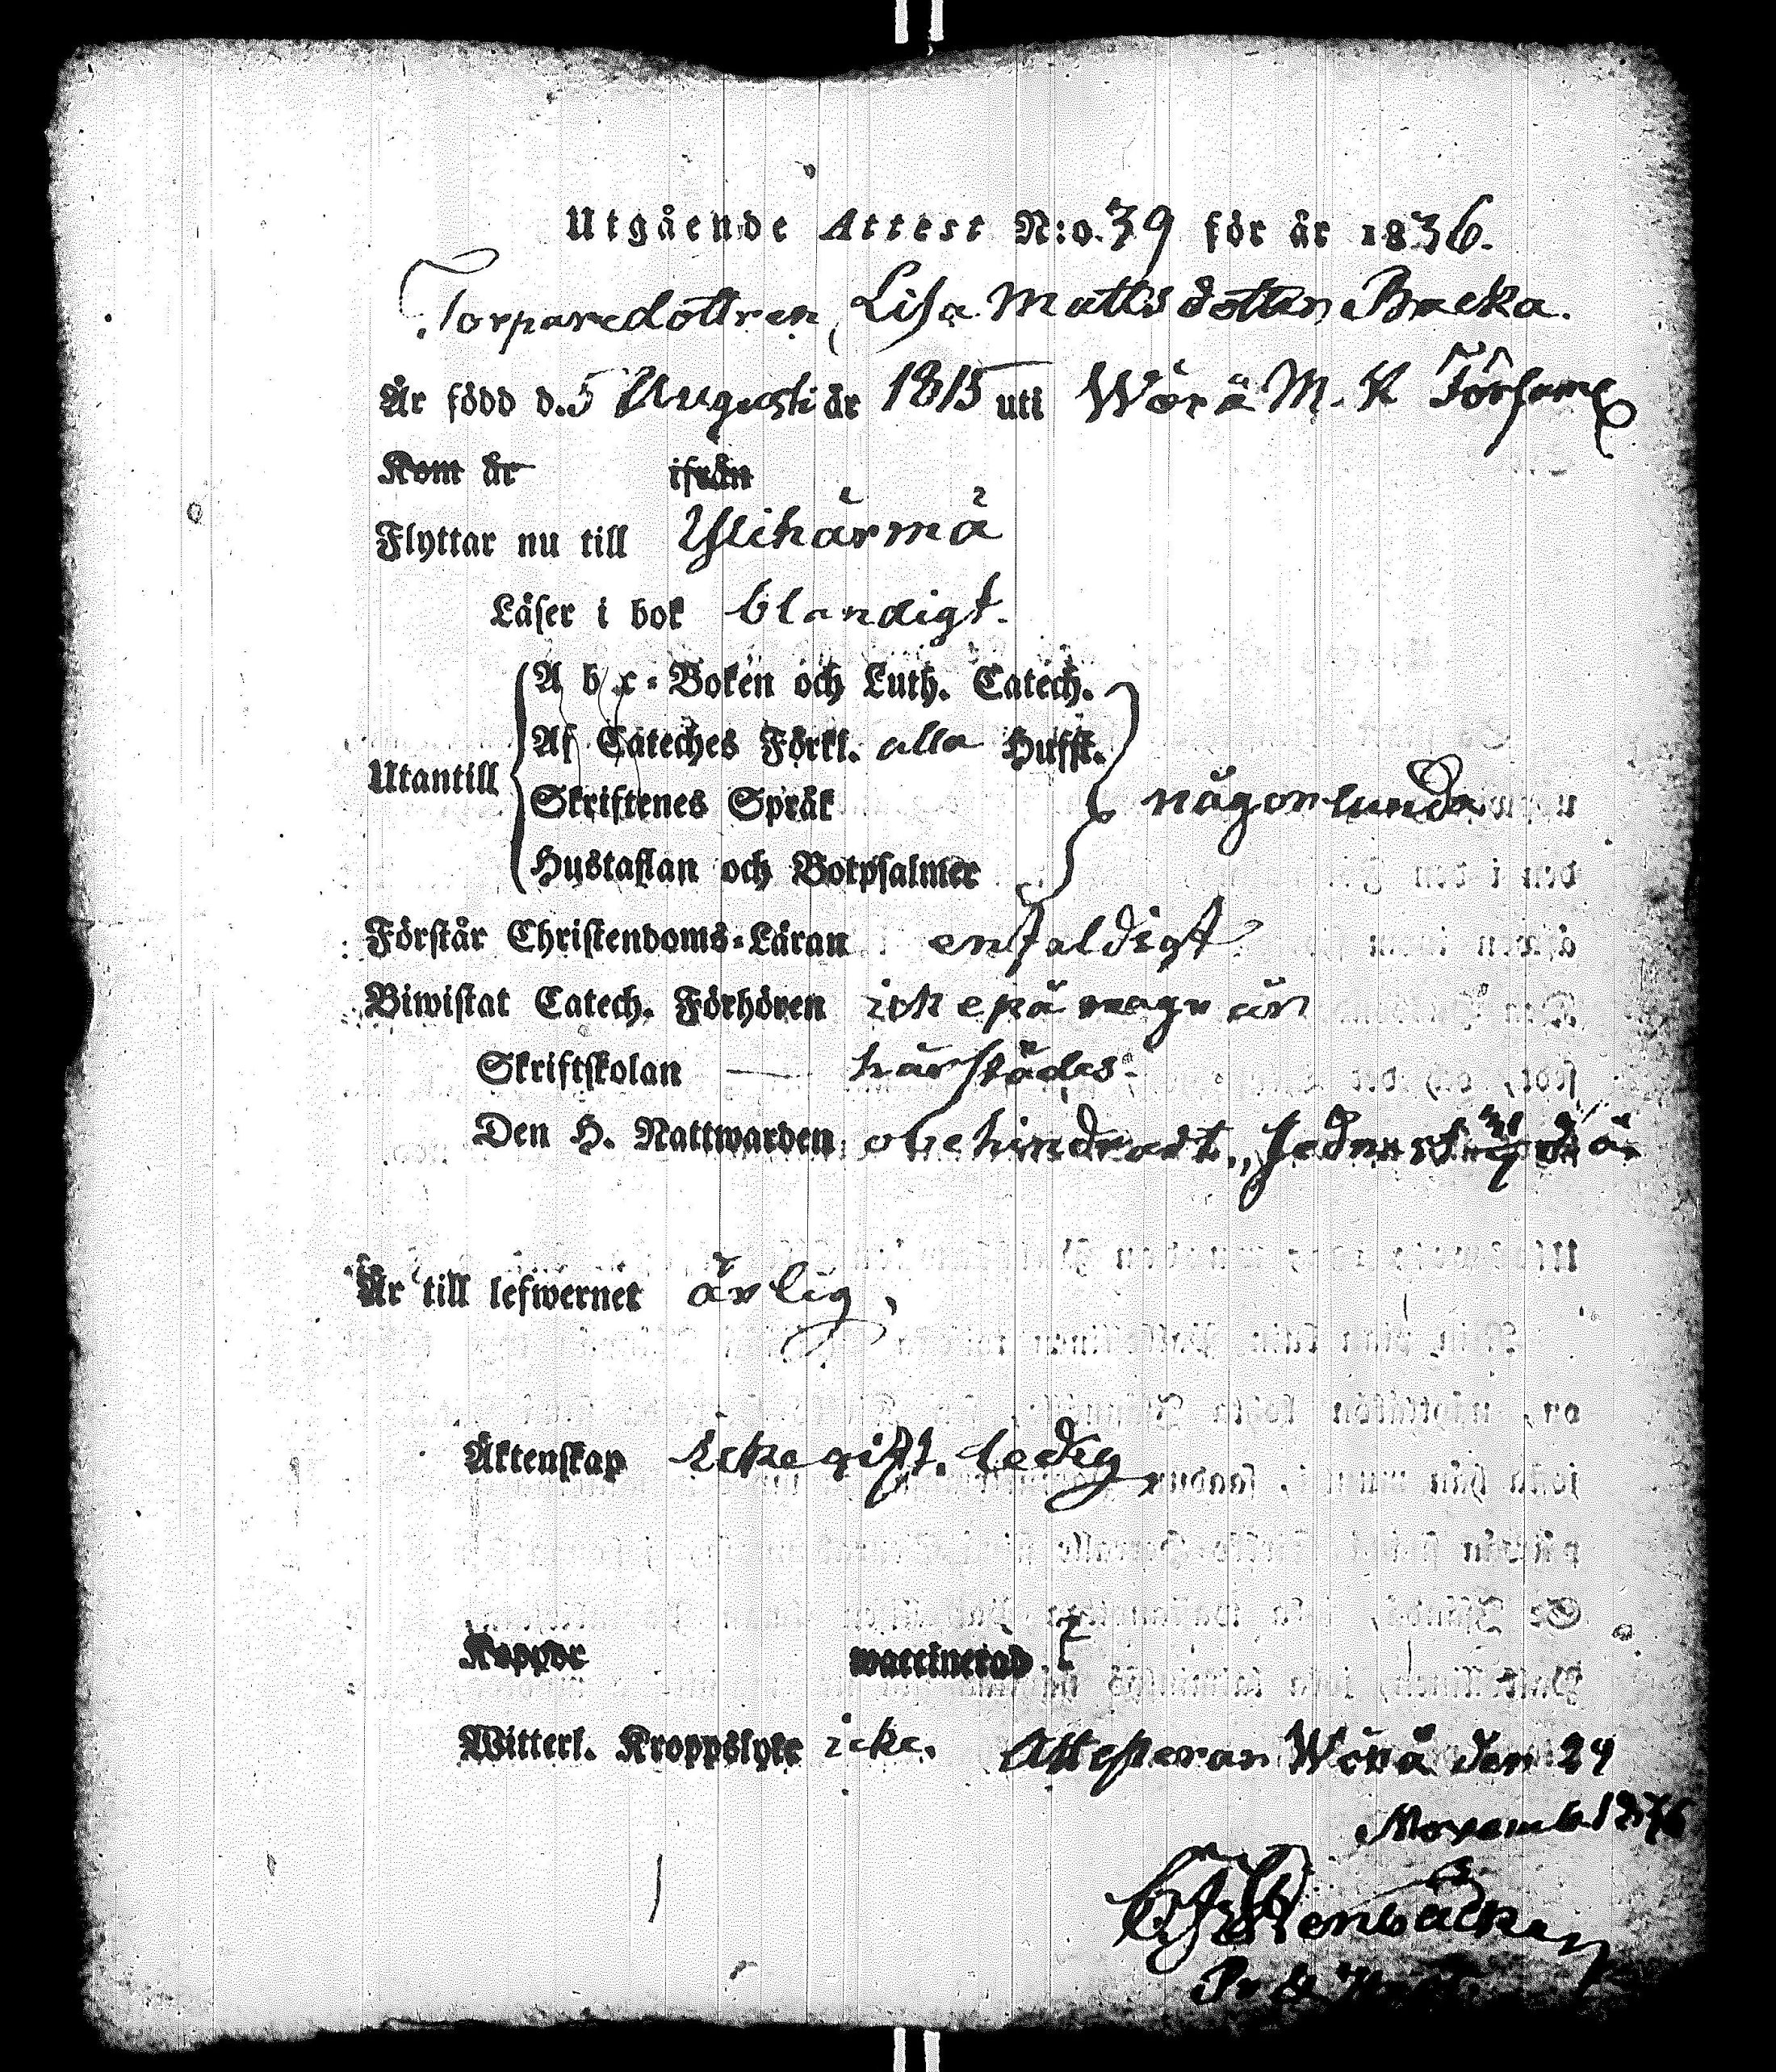 Utgående Attest N:o. 39 för år 1836.
Torparedottren, Lisa Mattsdotter Backa.
Är född d. 5 Augusti år 1815 uti Wörå M. K Församl
Kom år ifrån
Flyttar nu till Ylihärmä
Läser i bok blandigt.
A b c-Boken och Luth. Catech.
Af Cateches Förkl. alla Hufst.
Utantill någorlunda
Skriftenes Språk
Hustaflan och Botpsalmer
Förstår Christendoms-Läran enfaldigt
Biwistat Catech. Förhören icke på några år
Skriftskolan — härstädes.
Den H. Nattwarden obehindradt, sednast
Är till lefwernet ärlig,
Äktenskap icke gift, ledig,
Koppor waccinerad
Witterl. Kroppslyte icke. Attesteras Wörå den 24
Novemb. 1836